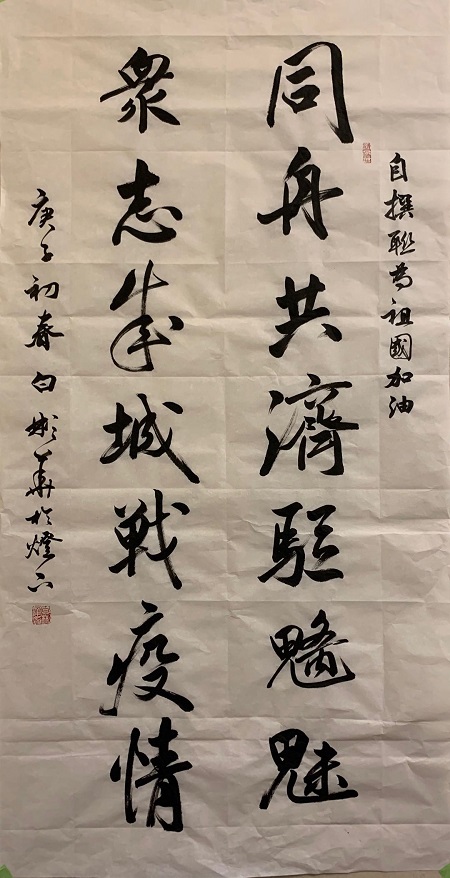 自撰聯為祖國加油
同舟共濟駈魑魅
衆志成城戦疫情
庚子初春白彬華於燈下